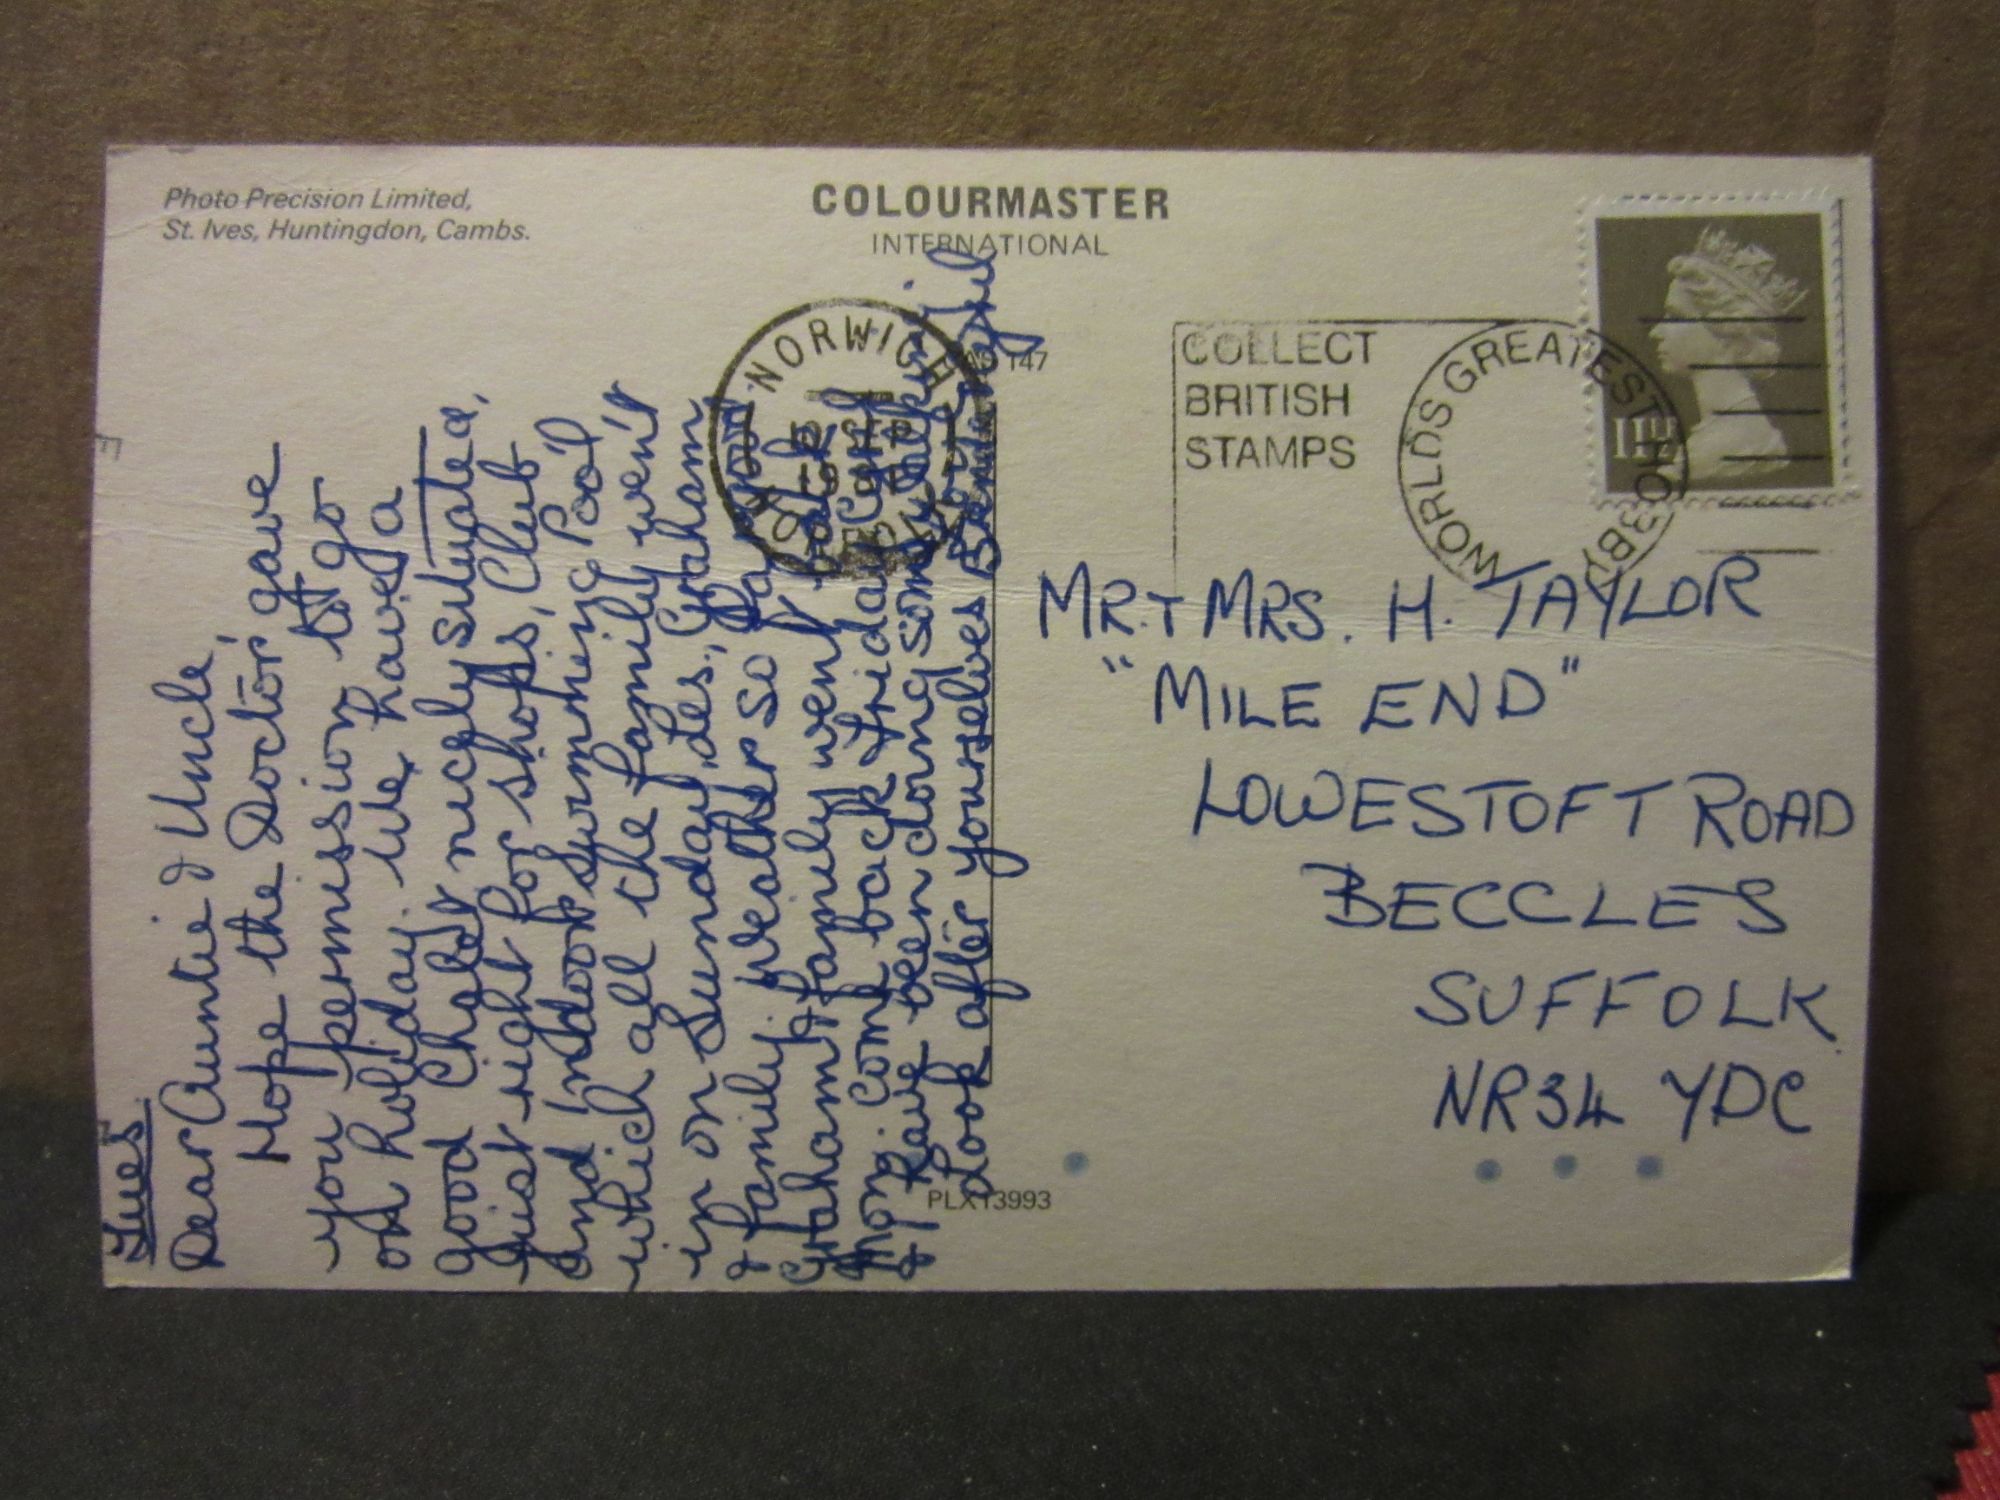 Photo Precision Limited,
St. Ives, Huntingdon, Cambs.
COLOURMASTER
INTERNATIONAL
147
NORWICH
COLLECT
BRITISH
STAMPS
WORLDS GREATEST HOBBY
11½
Tues
Dear Auntie & Uncle,
Hope the Doctor gave
you permission to go
on holiday. We have a
good Chalet nicely situated,
just right for shops, Club
and Indoor Swimming Pool
which all the family went
in on Sunday. Les, Graham
& family, weather so far good
Graham & family went back
Mon: come back Friday
& I have been doing some walking
Look after yourselves
PLX13993
MR. + MRS. H. TAYLOR
"MILE END"
LOWESTOFT ROAD
BECCLES
SUFFOLK
NR34 YDC